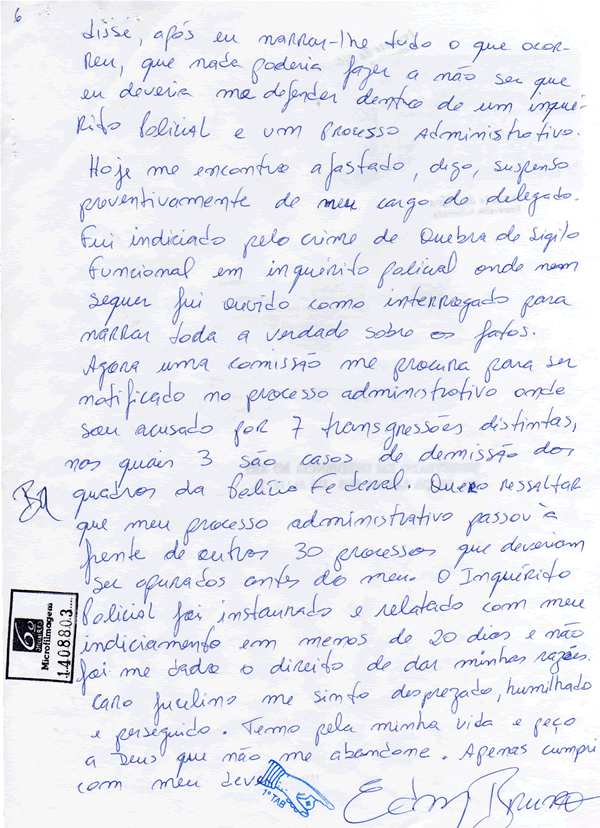 6
disse, após eu narrar-lhe tudo o que ocor-
reu, que nada poderia fazer a não ser que
eu deveria me defender dentro de um inqué-
rito Policial e um processo Administrativo.
Hoje me encontro afastado, digo, suspenso
preventivamente de meu cargo de delegado.
Fui indiciado pelo crime de Quebra de Sigilo
Funcional em inquérito policial onde nem
sequer fui ouvido como interrogado para
narrar toda a verdade sobre os fatos.
Agora uma comissão me procura para ser
notificado no processo administrativo onde
sou acusado por 7 transgressões distintas,
nas quais 3 são casos de demissão dos
quadros da Polícia Federal. Quero ressaltar
que meu processo administrativo passou à
frente de outros 30 processos que deveriam
ser apurados antes do meu. O Inquérito
Policial foi instaurado e relatado com meu
indiciamento em menos de 20 dias e não
foi me dado o direito de dar minhas razões.
Caro Jucelino me sinto desprezado, humilhado
e perseguido. Temo pela minha vida e peço
a Deus que não me abandone. Apenas cumpri
com meu dever.
6º
Microfilmagem
1408803
1º TAB
Bruno